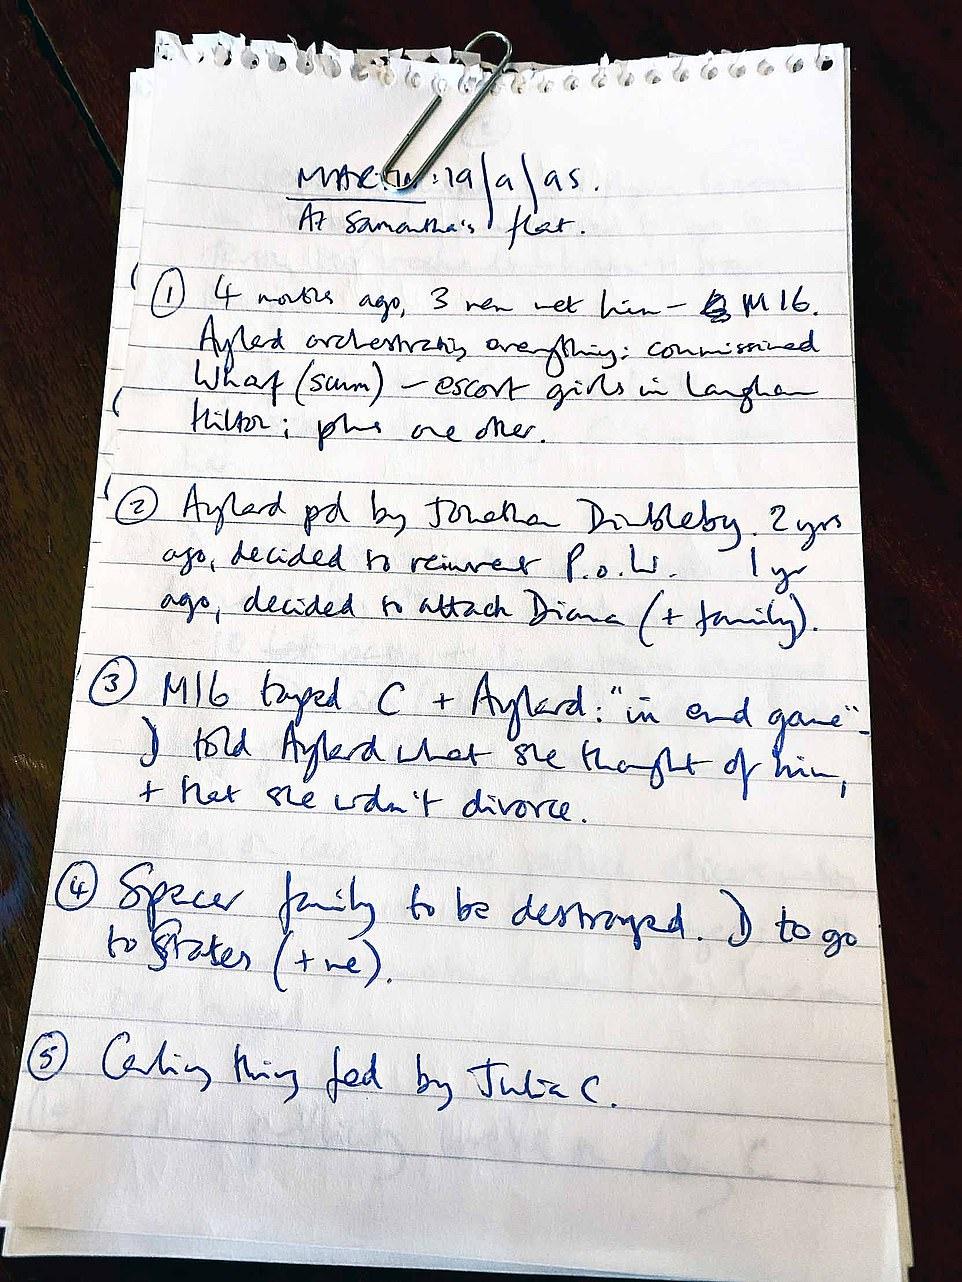 MARTIN: 19/9/95.
At Samantha's flat.
① 4 months ago, 3 men met him – MI6.
Aylard orchestrating everything: commissioned
Wharf (scum) – escort girls in Langham
Hilton; plus one other.
② Aylard pd by Jonathan Dimbleby. 2 yrs
ago, decided to reinvent P.o.W. 1 yr
ago, decided to attack Diana (+ family).
③ MI6 taped C + Aylard: "in end game".
D told Aylard what she thought of him,
+ that she wdn't divorce.
④ Spencer family to be destroyed. D to go
to States (+ me).
⑤ Carling thing fed by Julia C.